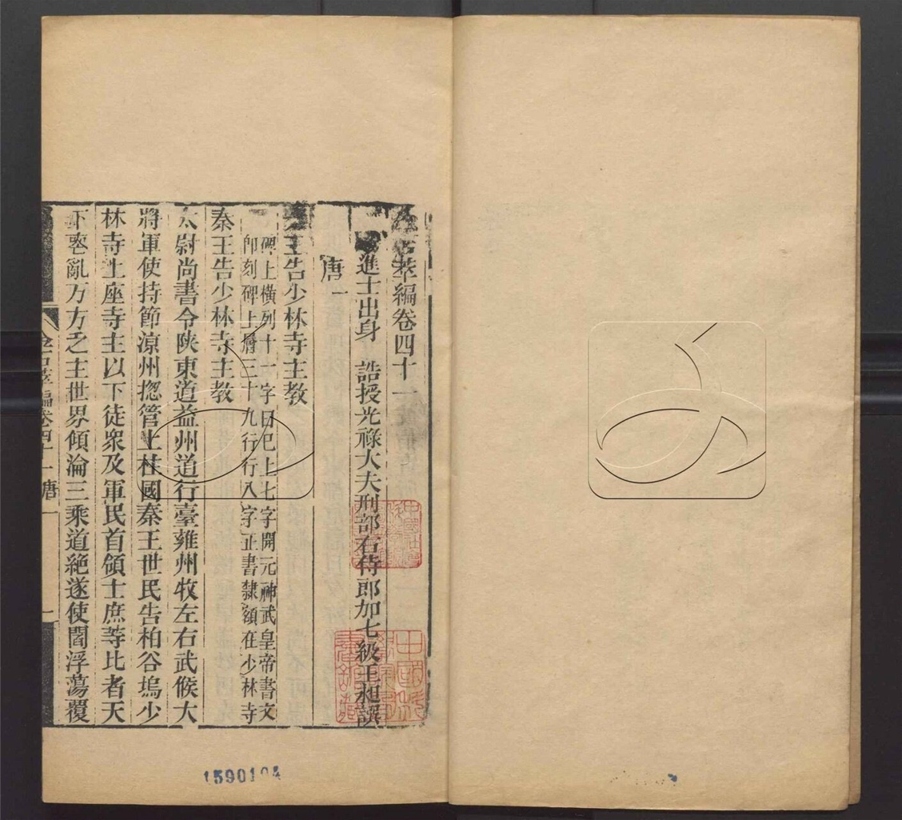 金石萃編卷四十一
進士出身 誥授光祿大夫刑部右侍郎加七級王昶譔
唐一
秦王告少林寺主教
碑上橫列十一字曰巳上七字開元神武皇帝書文
卽刻碑上層三十九行行八字正書隸額在少林寺
秦王告少林寺主教
太尉尚書令陝東道益州道行臺雍州牧左右武候大
將軍使持節涼州揔管上柱國秦王世民告柏谷塢少
林寺上座寺主以下徒衆及軍民首領士庶等比者天
下喪亂万方乏主世界傾淪三乘道絶遂使閻浮蕩覆
金石萃編卷四十一 唐一
一